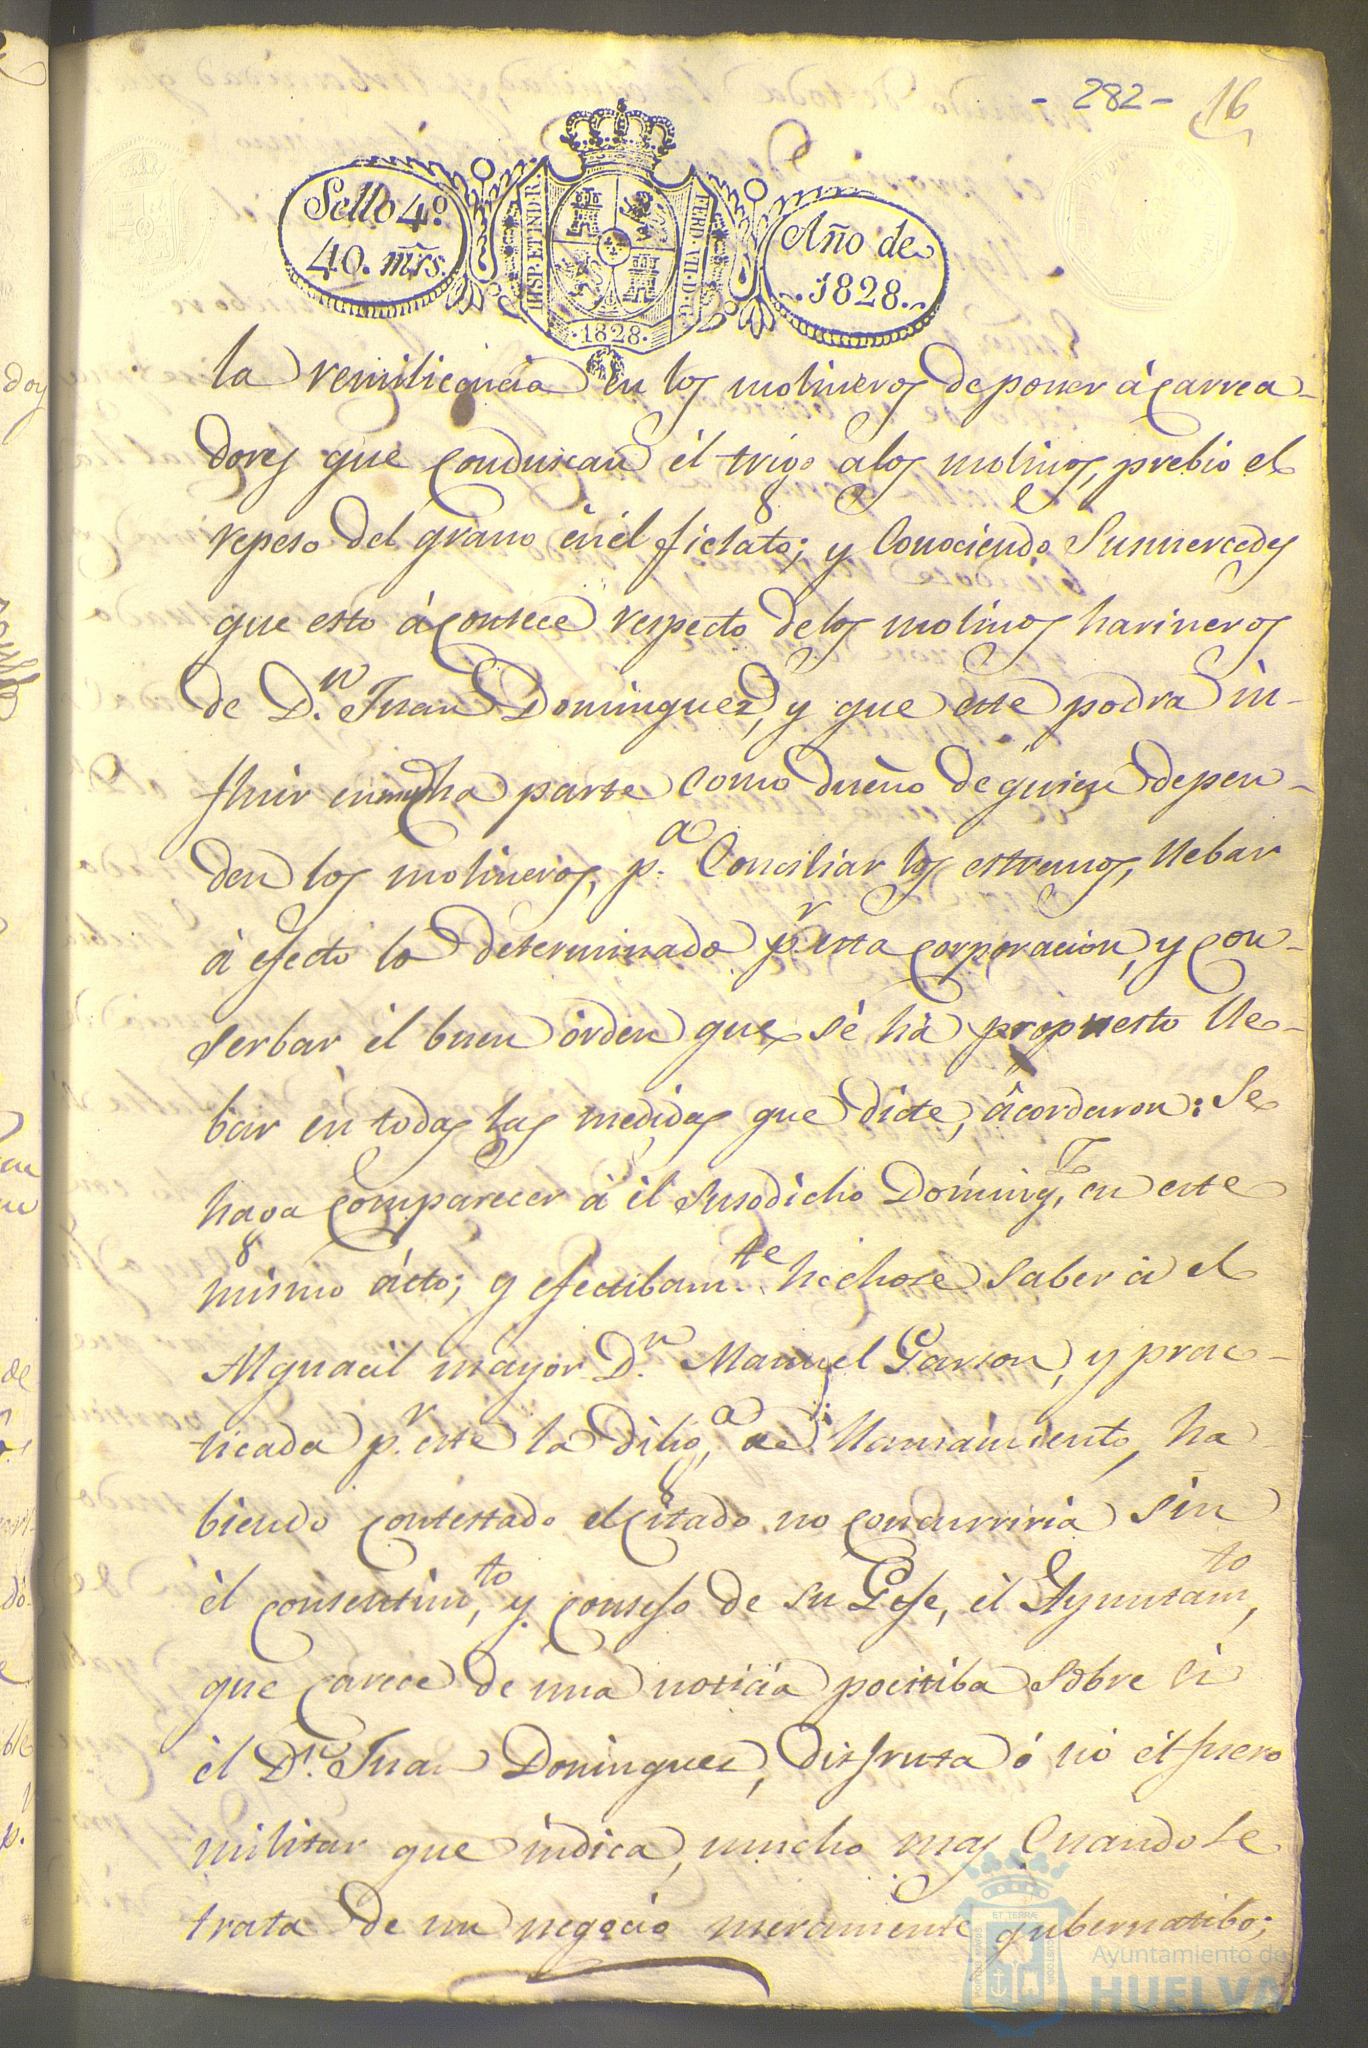 - 282 - 16
Sello 4º
40. mrs.
HISP. ET IND. R.
FERD. VII. D. G.
·1828·
Año de
1828.
la renitiencia en los molineros de poner á carrea-
dores que conduscan él trigo alos molinos, prebio el
repeso del grano en él fielato; y Conociendo Susmercedes
que esto ácontece respecto delos molinos harineros
de D.n Juan Dominguez, y que este podra in-
fluir enmucha parte como dueño de quien depen-
den los molineros, p.a Conciliar los estremos, llebar
á efecto lo determinado p.r esta corporacion, y con-
serbar él buen órden que sé há propuesto lle-
bar en todas las medidas que dicte, ácordaron: Se
haga comparecer á él susodicho Domingz, en este
mismo ácto; y efectibam.te hichose saber á el
Alguacil mayor D.n Manuel Garson, y prac-
ticada p.r este la dilig.a de llamamiento, ha
biendo contestado el citado no concurriria sin
él consentim.to, y conseso de su Gefe, él Ayuntam.to,
que carece de una noticia pocitiba sobre si
él D.n Juan Dominguez, disfruta ó nó él fuero
militar que indica, mucho mas Cuando se
trata de un negocio meramente gubernatibo;
Ayuntamiento de
HUELVA